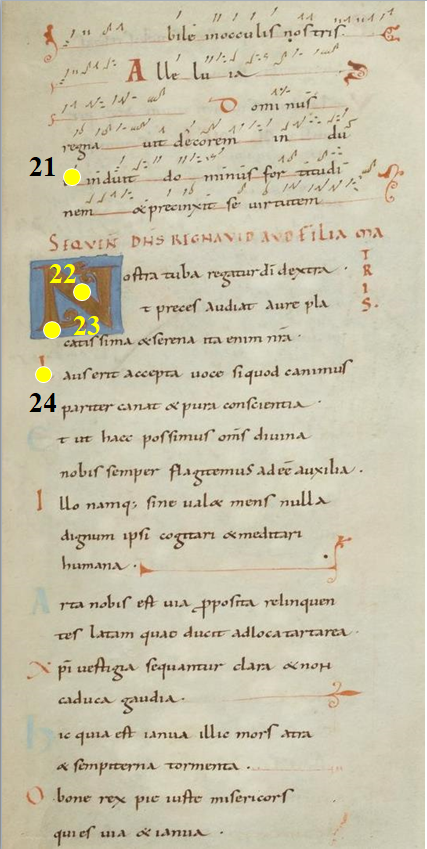 bile inocculis nostris.
Alleluia
Dominus
regna uit decorem in du
induit dominus for titudi
nem & precinxit se uirtutem
SEQUEN DNS REGNAVID AVD FILIA MATRIS.
Nostra tuba regatur di dextra.
t preces audiat aure pla
catissima & serena ita enim nra
aus erit accepta uoce si quod canimus
pariter canat & pura conscientia.
Et ut haec possimus oms diuina
nobis semper flagitemus adeē auxilia.
Illo namq; sine ual& mens nulla
dignum ipsi cogitari & meditari
humana.
Arta nobis est uia pposita relinquen
tes latam quae ducit adloca tartarea.
Xpi uestigia sequantur clara & non
caduca gaudia.
Hic quia est ianua illic mors atra
& sempiterna tormenta.
O bone rex pie iuste misericors
qui es uia & ianua.
21
22
23
24